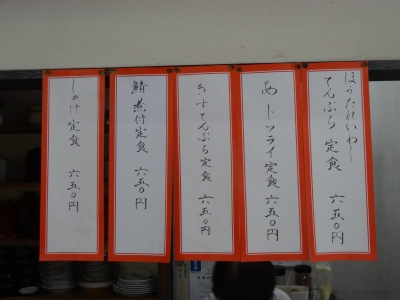 ほうたれいわし
てんぷら 定食 六五〇円
あじフライ定食 六五〇円
きすてんぷら定食 六五〇円
鯖煮付定食 六五〇円
しゃけ定食 六五〇円